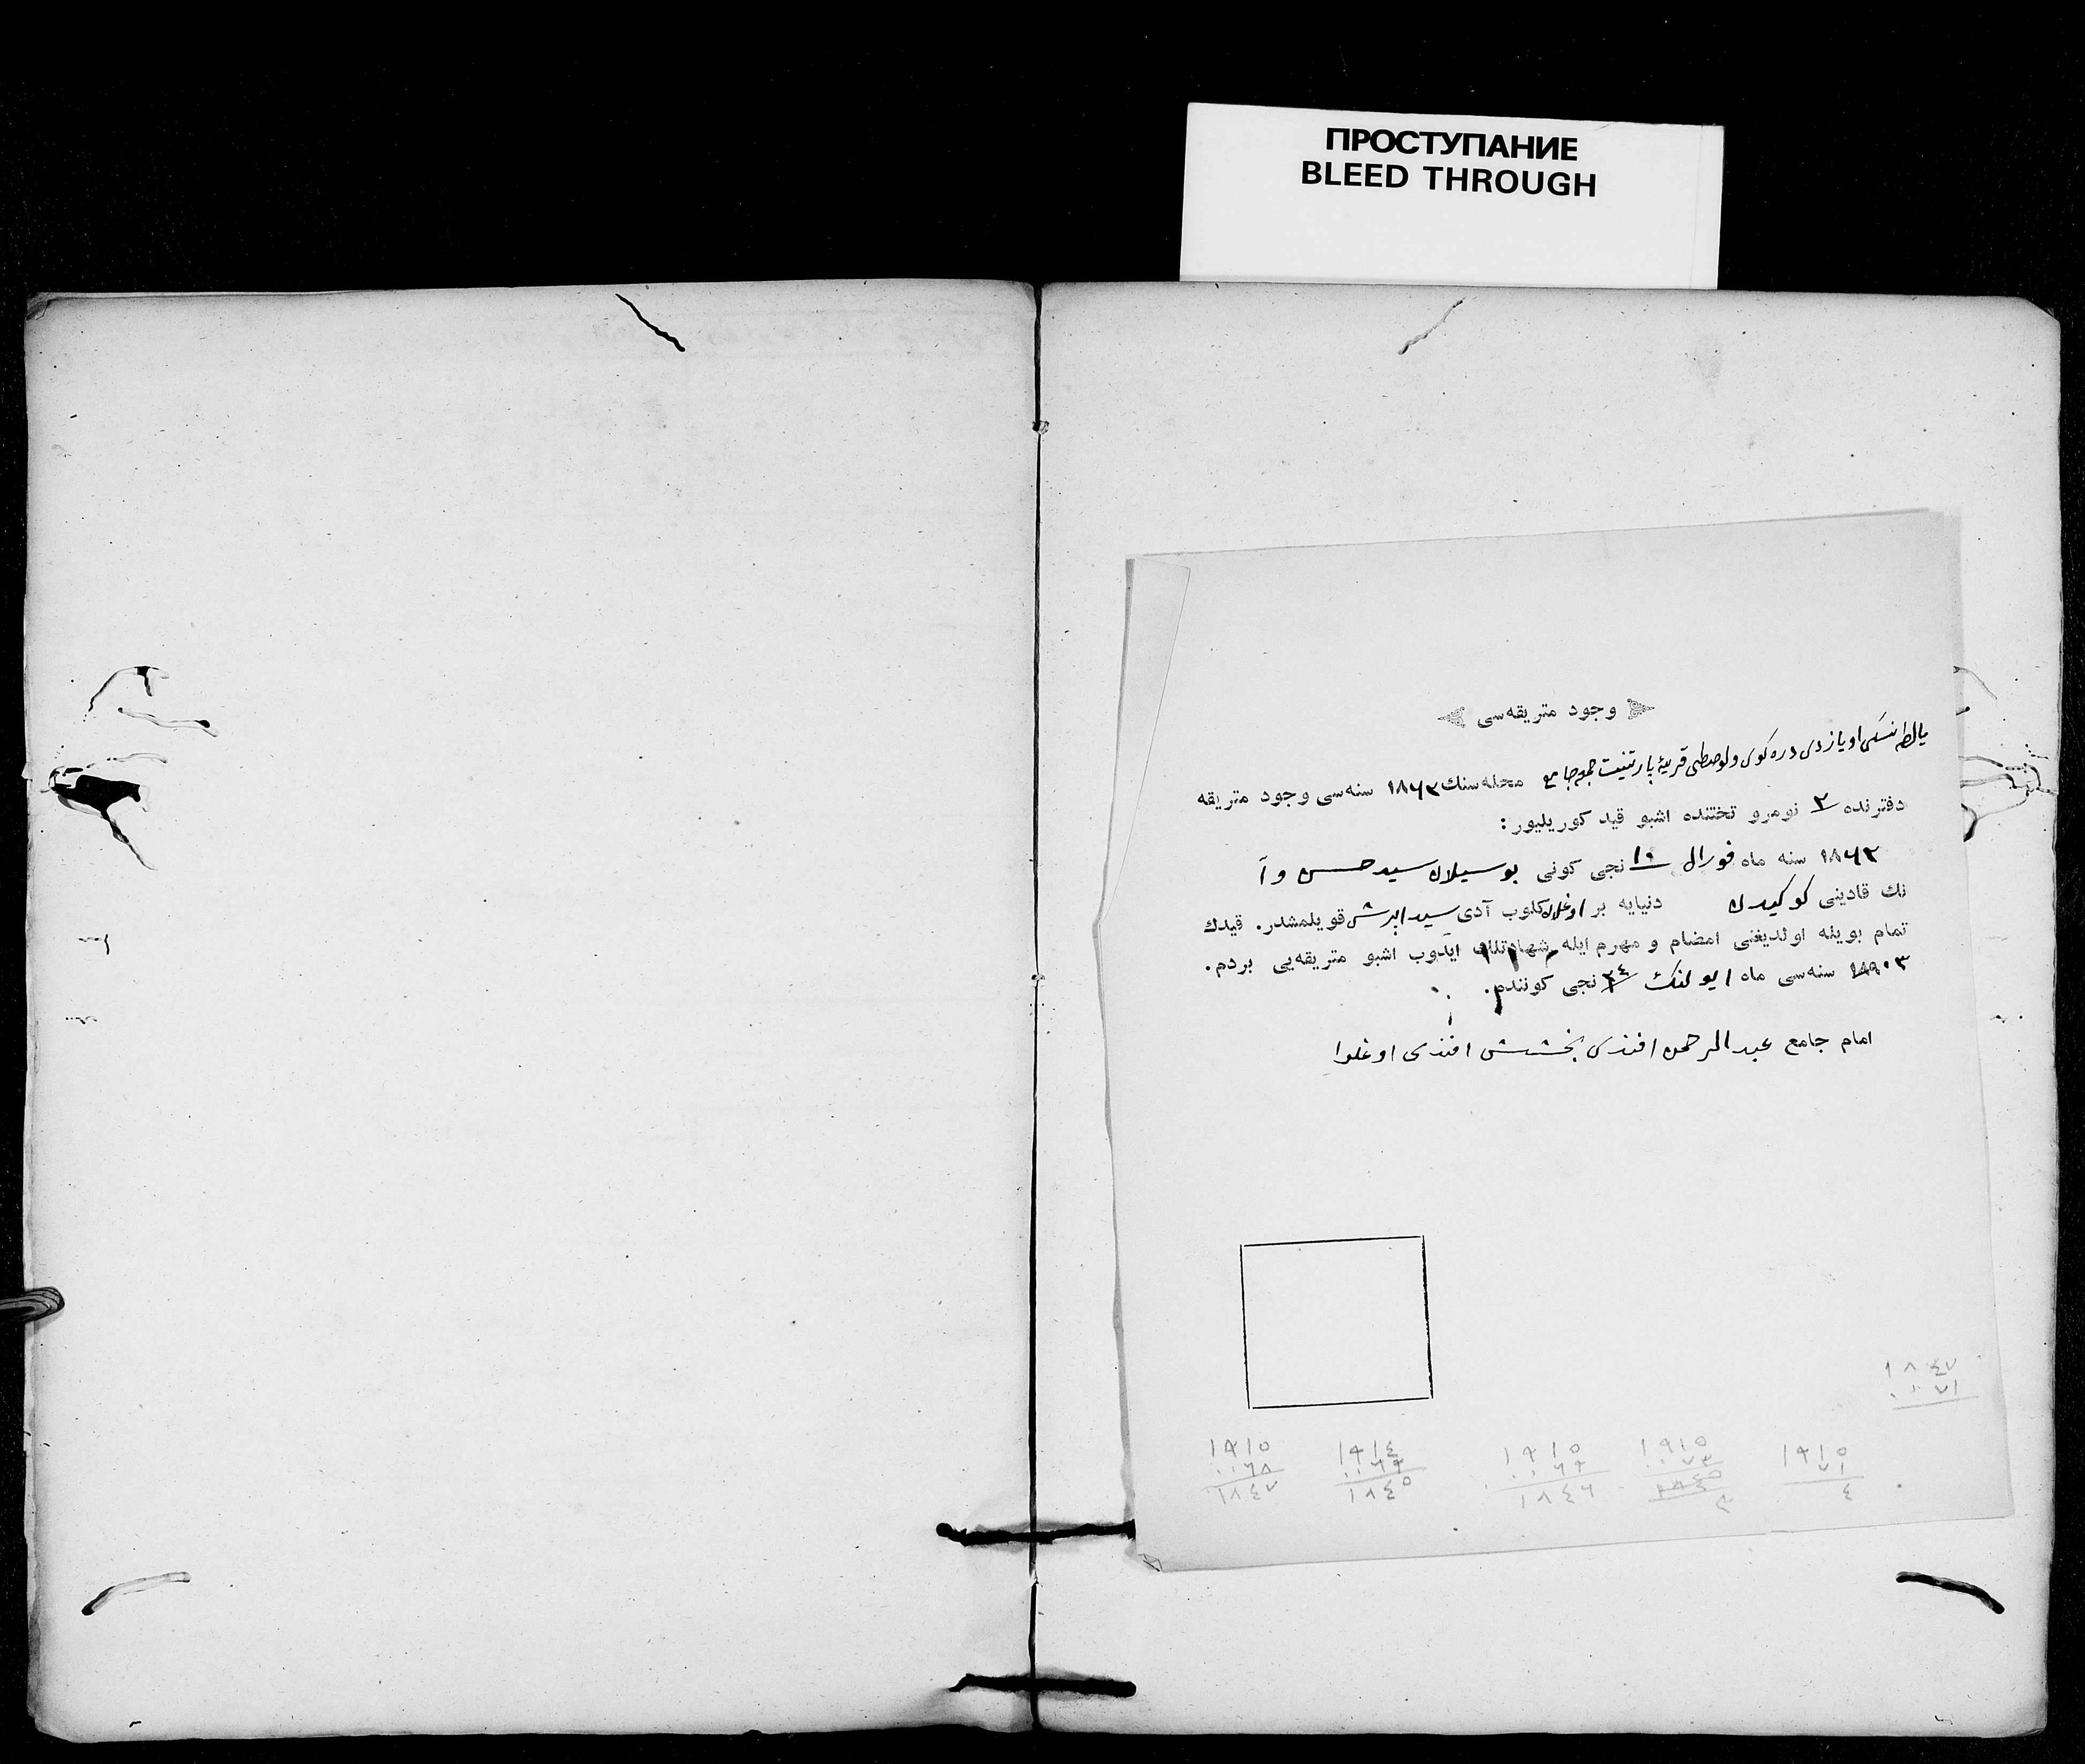 ПРОСТУПАНИЕ
BLEED THROUGH
وجود متریقه‌سی
یالطه‌نسكی اویازدی دره‌كوی ولوصطی قریهٔ پارتنیت جمعه جامع محله‌سنك ١٨٦٣ سنه‌سی وجود متریقه
دفترنده ٣ نومرو تختنده اشبو قید كوریلیور:
١٨٦٣ سنه ماه فورال ١٥ نجی كونی سید حسن و آ
نك قادینی دنیایه بر اوغلان كلوب آدی قویلمشدر. قیدك
تمام بویله اولدیغنی امضام و مهرم ایله شهادتلك ایدوب اشبو متریقه‌یی بردم.
١٩٠٣ سنه‌سی ماه ایولنك ٢٤ نجی كوننده.
امام جامع عبدالرحمن افندی بخشش افندی اوغلوا
١٨٤٧
٠٠٧١
١٩١٥
٠٠٦٨
١٨٤٧
١٩١٤
٠٠٦٩
١٨٤٥
١٩١٥
٠٠٦٩
١٨٤٦
١٩١٥
٠٠٧٣
١٩١٥
٧١
٤